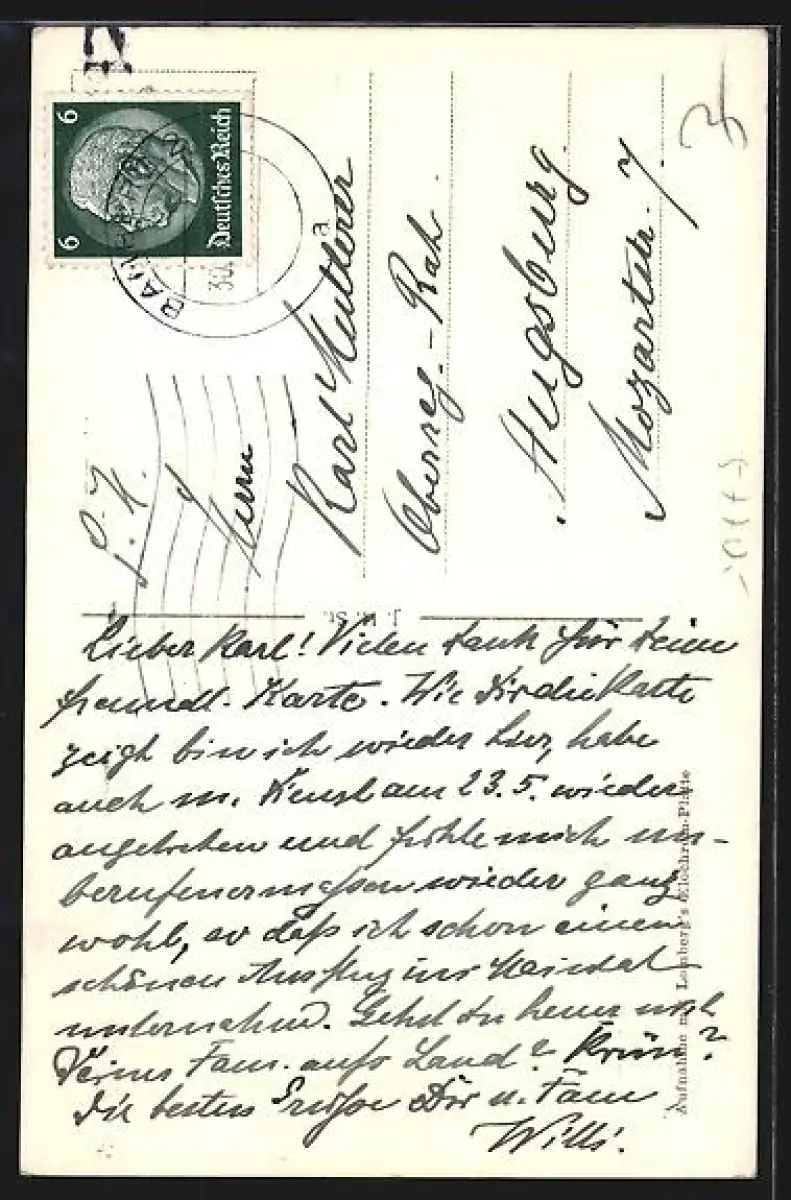 6 6
Deutsches Reich
a
L. H.
Herrn
Karl Mutterer
Oberreg.-Rat.
Augsburg.
Mozartstr. 7
J. W. St.
Lieber Karl! Vielen Dank für Deine
freundl. Karte. Wie Dir die Karte
zeigt bin ich wieder hier, habe
auch m. Dienst am 23.5. wieder
angetreten und fühle mich un-
berufenermaßen wieder ganz
wohl, so daß ich schon einen
schönen Ausflug ins
unternahm. Gehst du heuer mit
Deiner Fam. aufs Land? Krün?
Die besten Grüße Dir u. Fam
Willi.
Aufnahme mit Lomberg's Platte